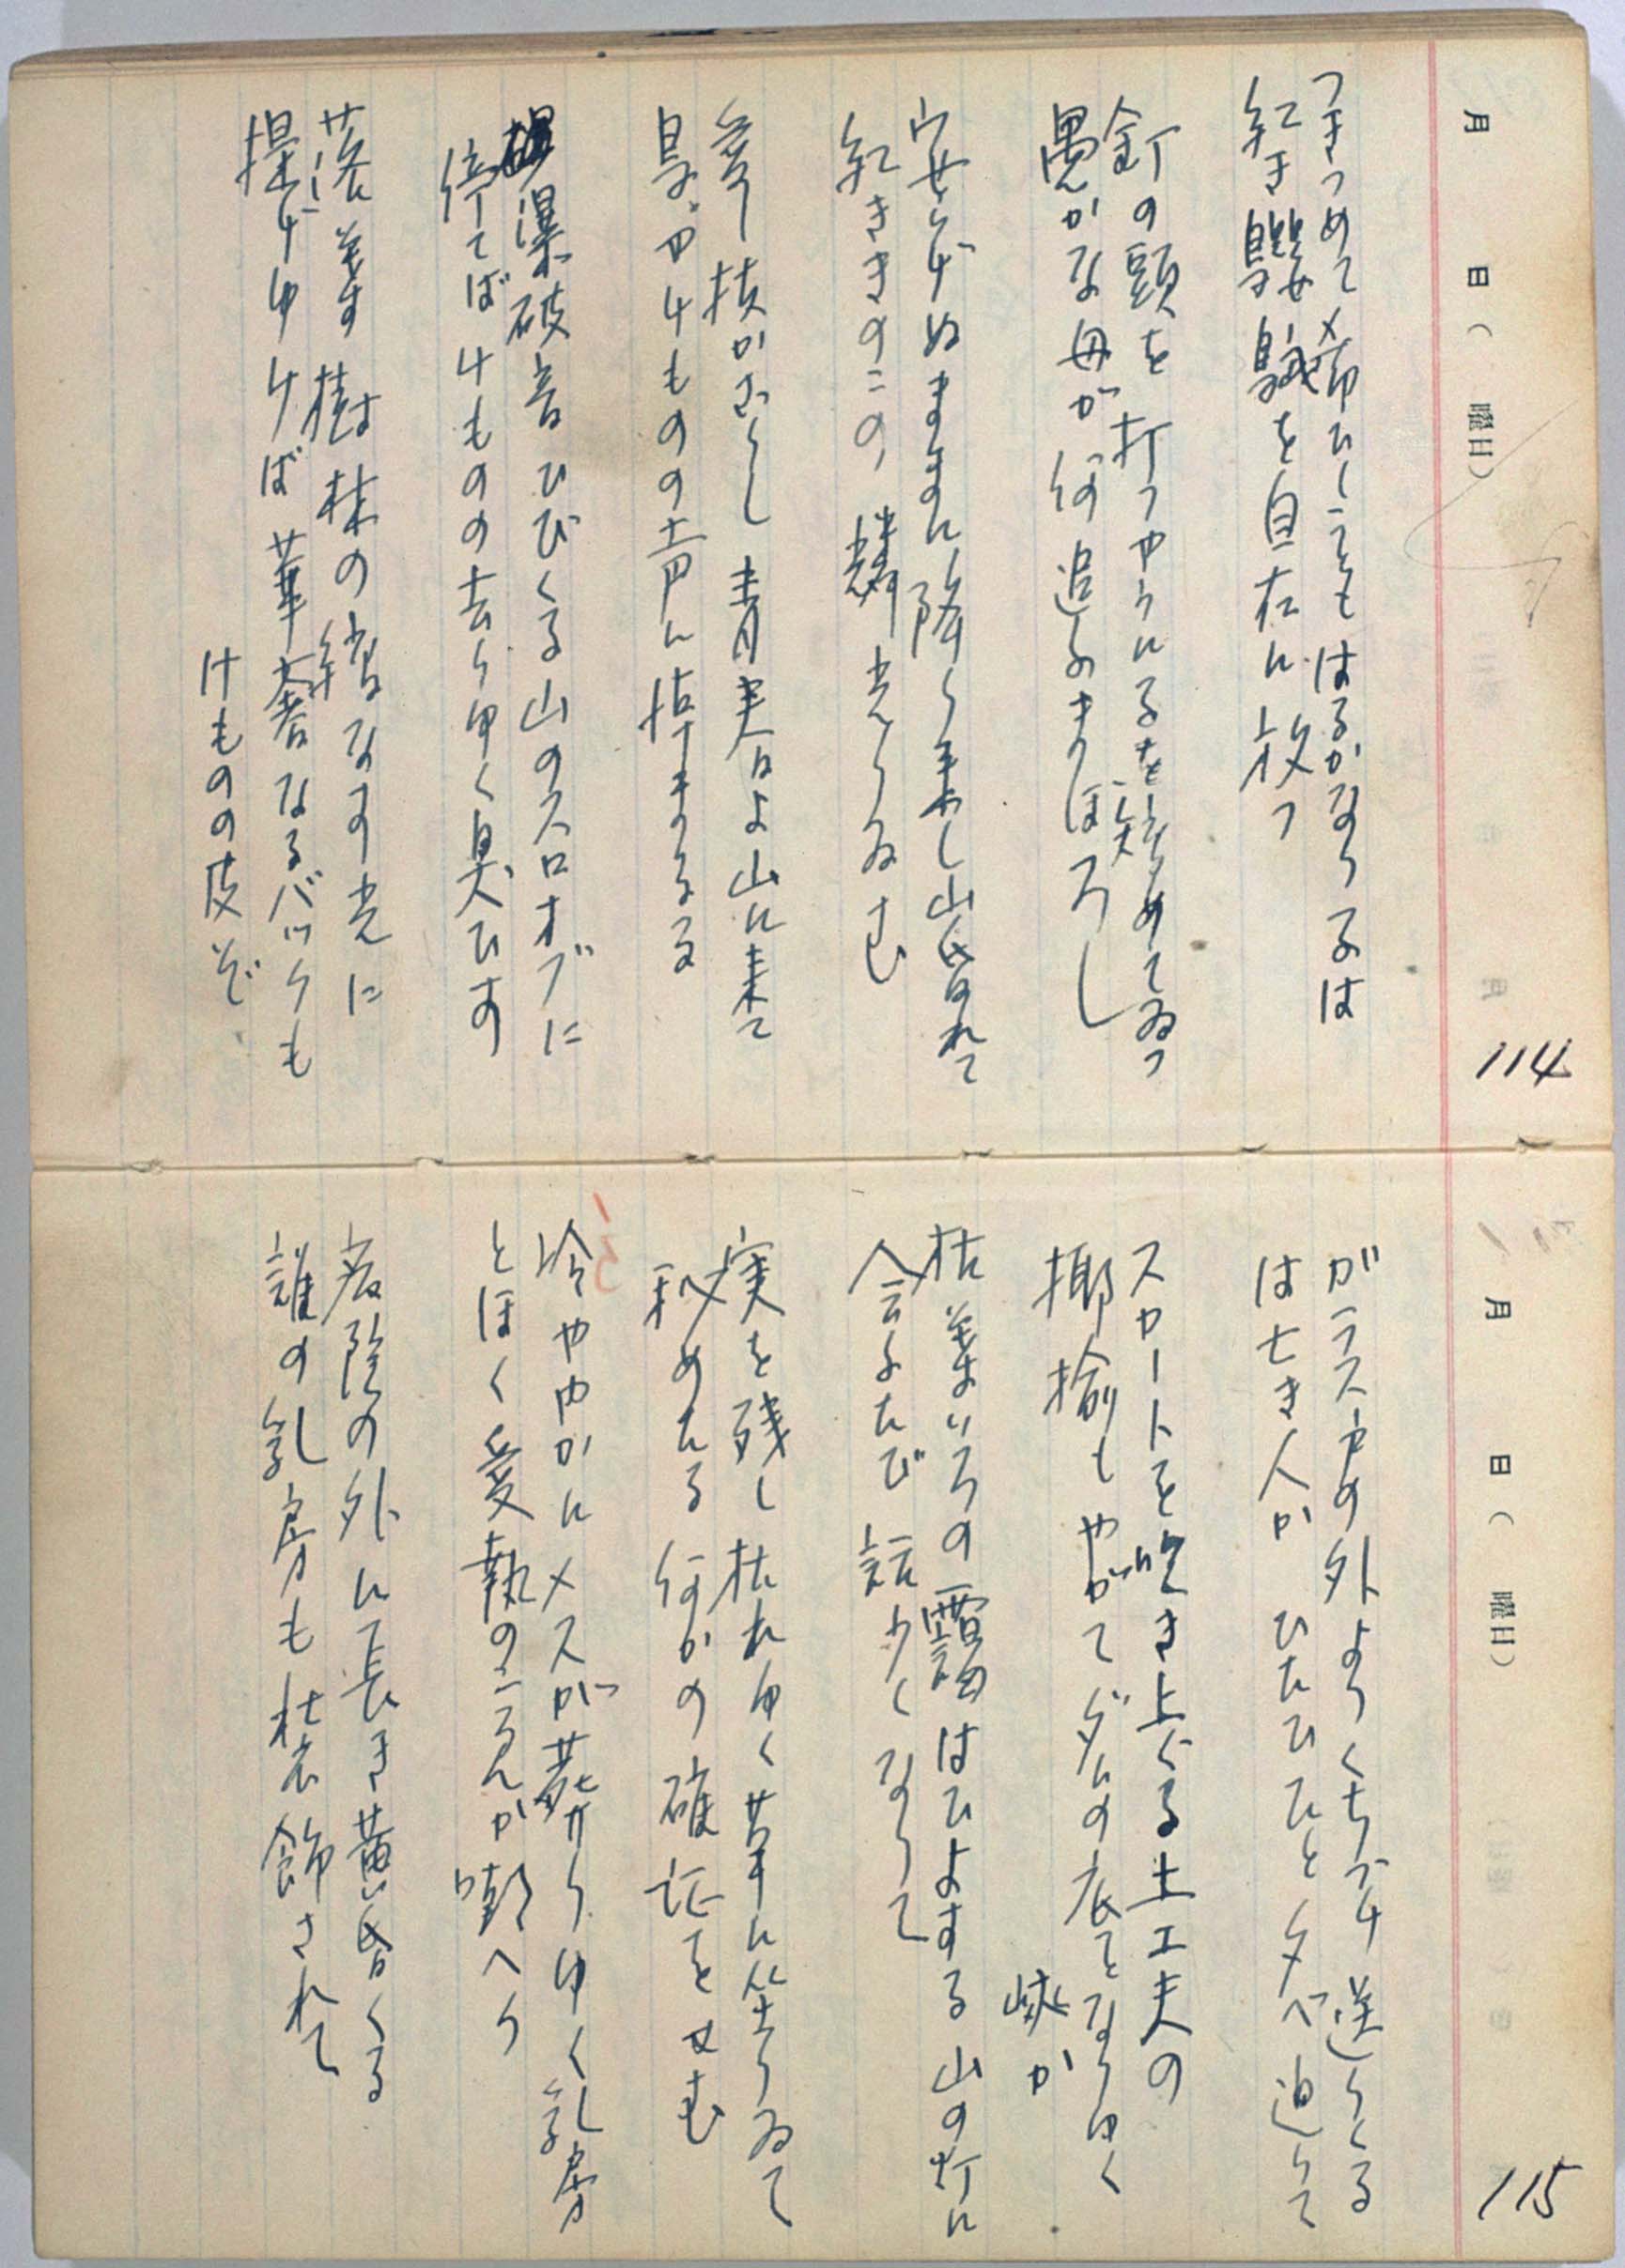 月 日( 曜日)
114
つきつめて希ひしこともはるかなり子は
紅き鸚鵡を自在に放つ
釘の頭を打つやうに子を窘めてゐつ
愚かな母が何追ふまぼろし
安らがぬままに降り来し山昏れて
紅ききのこの燐光りゐむ
枝かざらし青実よ山に来て
けものの声に悼まるる
爆破音ひびくる山のスロオプに
佇てばけものの去りゆく臭ひす
落葉す樹林の縞なす光に
提げゆけば華奢なるバックも
けものの皮ぞ
月 日( 曜日)
115
ガラス戸の外よりくちづけ送りくる
は亡き人か ひたひひと夕べ迫りて
スカートを吹き上ぐる土工夫の
揶揄もやがてダムの底となりゆく
峡か
枯葉いろの靄はひよする山の灯に
会ふたび話少くなりて
実を残し枯れゆく草に坐りゐて
秘めたる何かの確証をせむ
冷ややかにメスが葬りゆく乳房
とほく愛執のこゑんが嘲へり
病院の外に長き黄昏くる
誰の乳房も粧飾されて